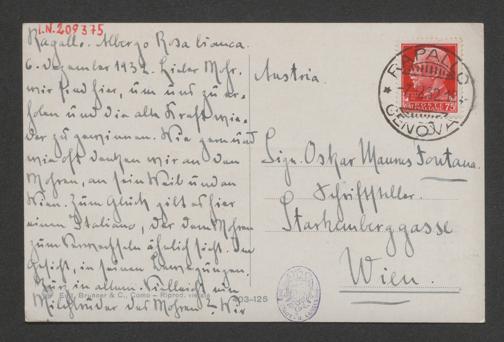 I.N. 209375
Rapallo. Albergo Rosa bianca.
6. Dezember 1932. Lieber Mohr,
wir sind hier, um uns zu er-
holen und die alte Kraft wie-
der zu gewinnen. Wie gern und
wie oft denken wir an den
Mohren, an sein Weib und an
Wien. Zum Glück gibt es hier
einen Italiano, der dem Mohren
zum Verwechseln ähnlich sieht. Im
Gesicht, in seinen Bewegungen.
in allem. Vielleicht ein
Milchbruder des Mohren? Wir
Brunner & C., Como - Riprod. vietata
403-125
Austria.
RAPALLO
GENOVA
POSTE ITALIANE
75
Sign. Oskar Maurus Fontana.
Schriftsteller.
Starhemberggasse
Wien.